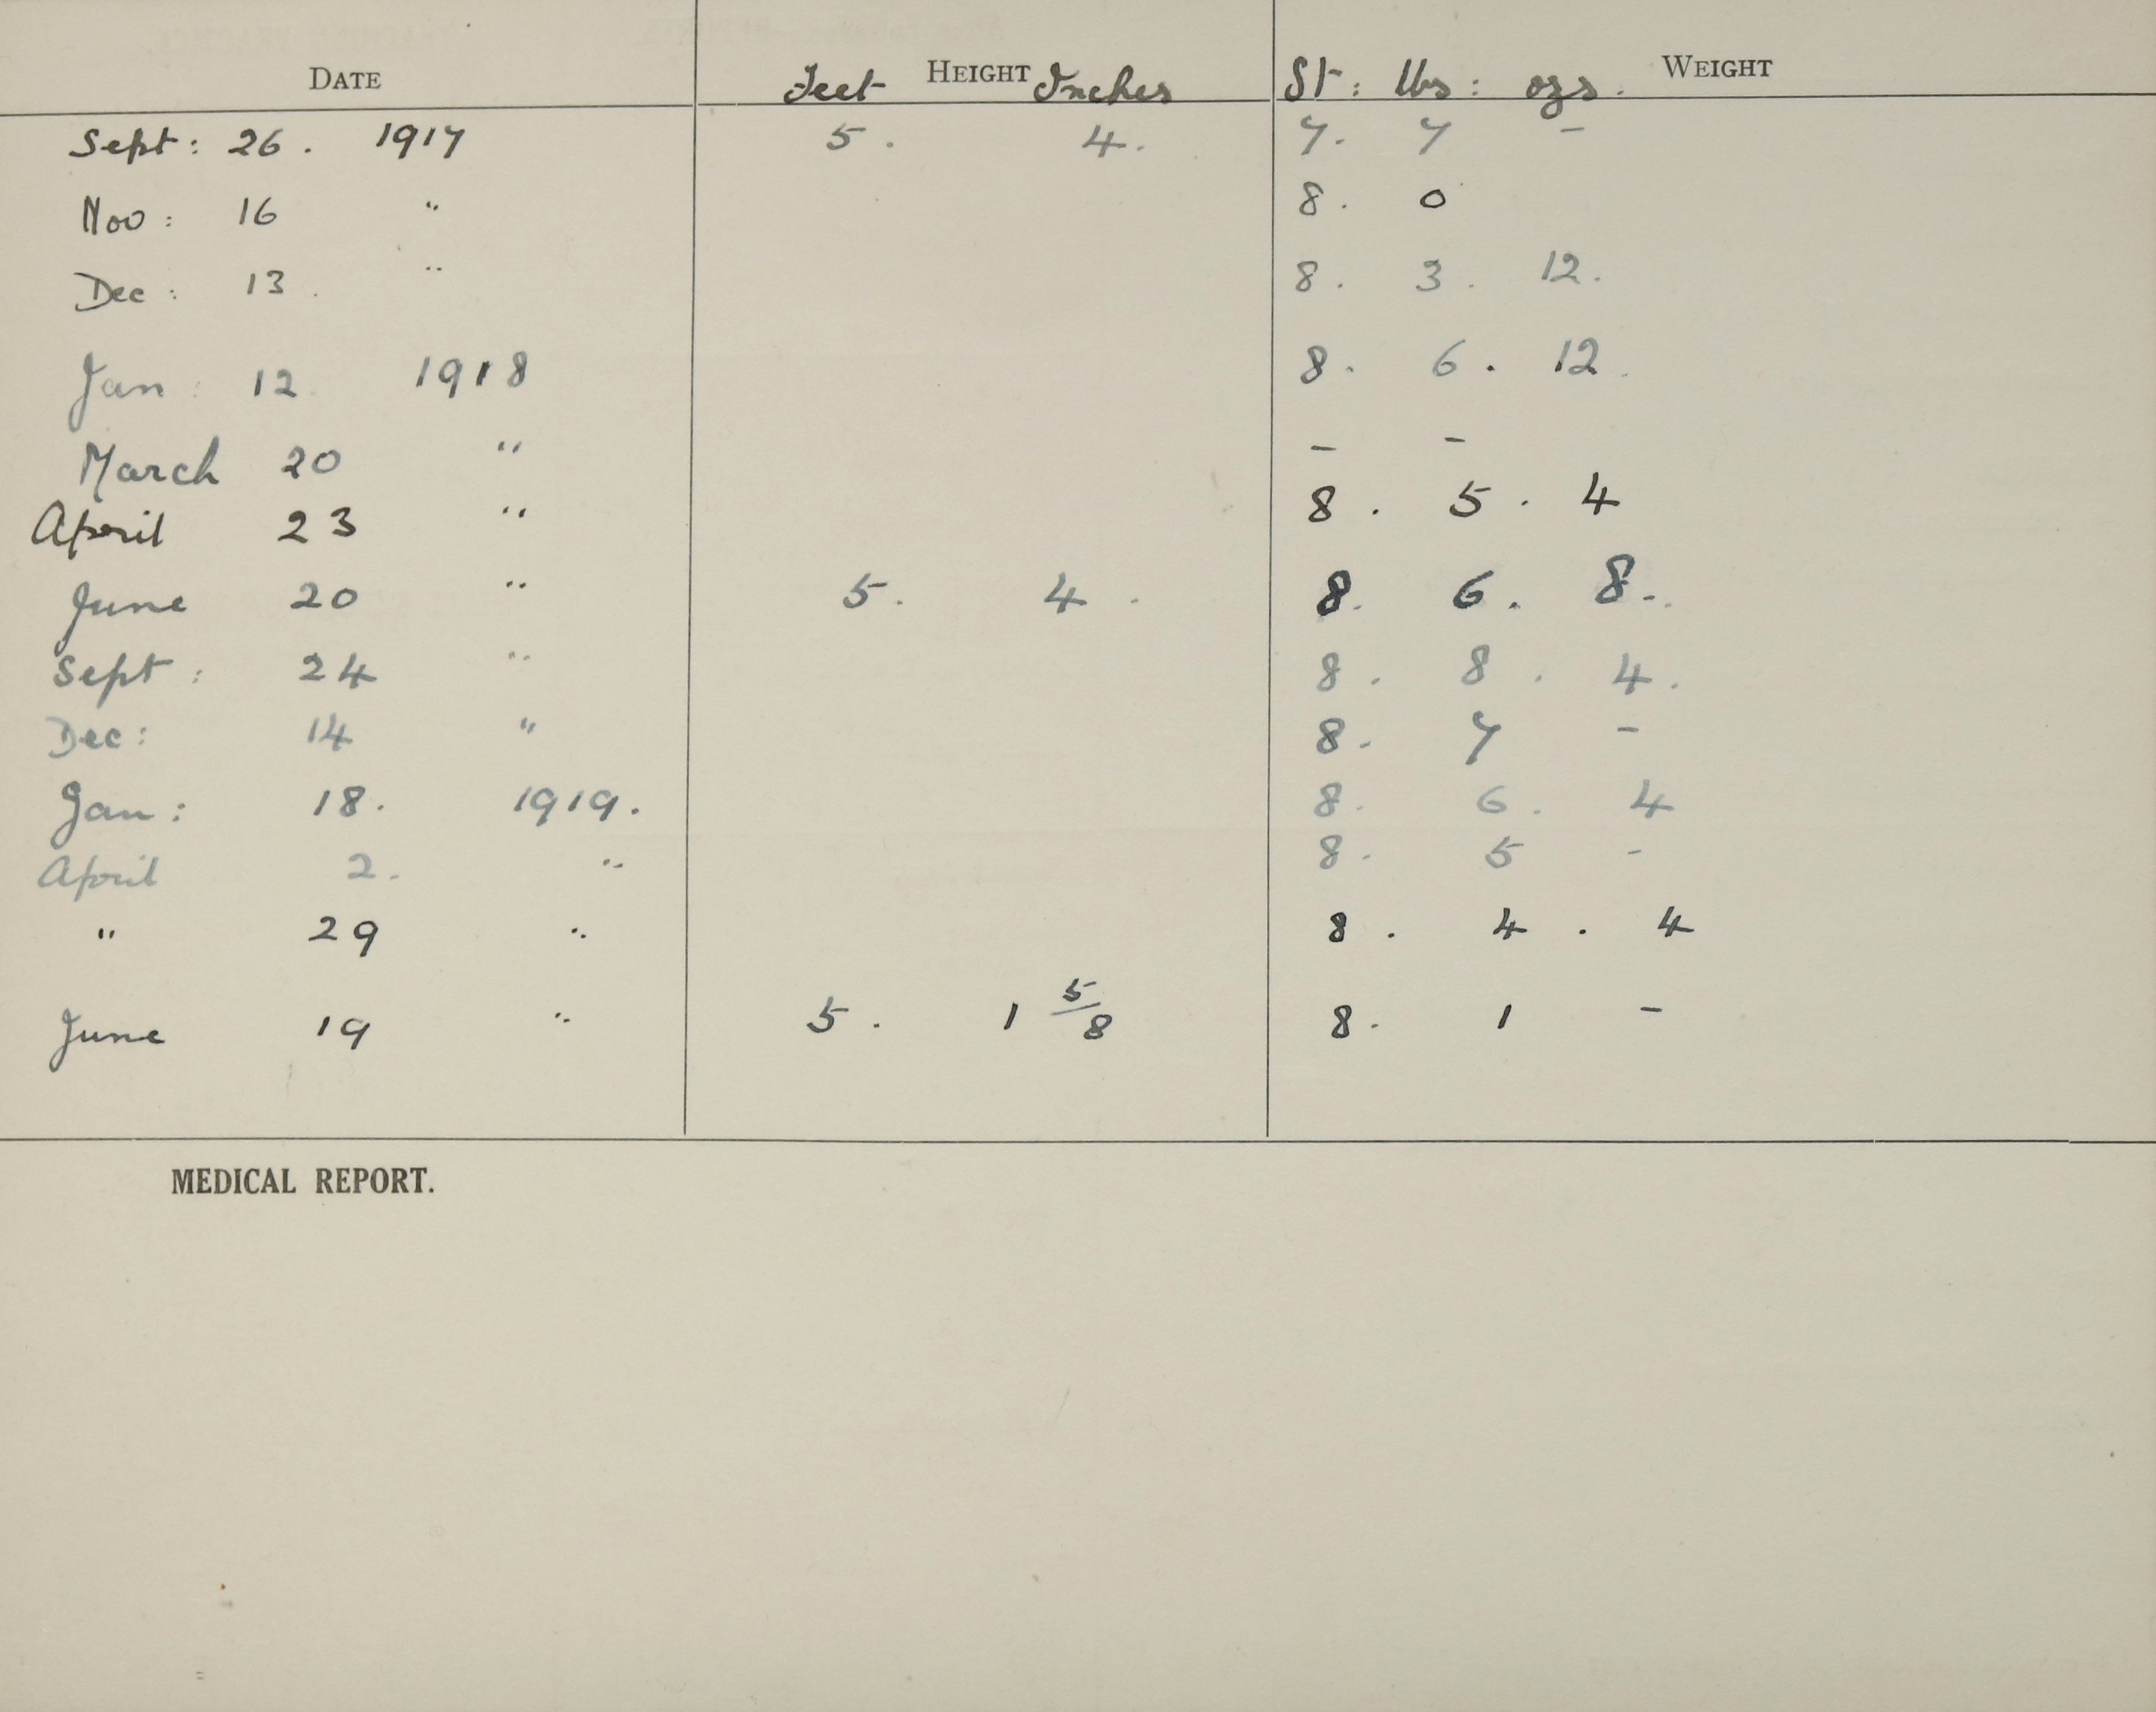 DATE Feet HEIGHT Inches St: lbs: ozs. WEIGHT
Sept: 26. 1917 5. 4. 7. 7 -
Nov: 16 " 8. 0
Dec: 13. " 8. 3. 12.
Jan: 12. 1918 8. 6. 12.
March 20 " - -
April 23 " 8. 5. 4
June 20 " 5. 4. 8. 6. 8.
Sept: 24 " 8. 8. 4.
Dec: 14 " 8. 7 -
Jan: 18. 1919. 8. 6. 4
April 2. " 8. 5 -
" 29 " 8. 4. 4
June 19 " 5. 1 5/8 8. 1 -
MEDICAL REPORT.